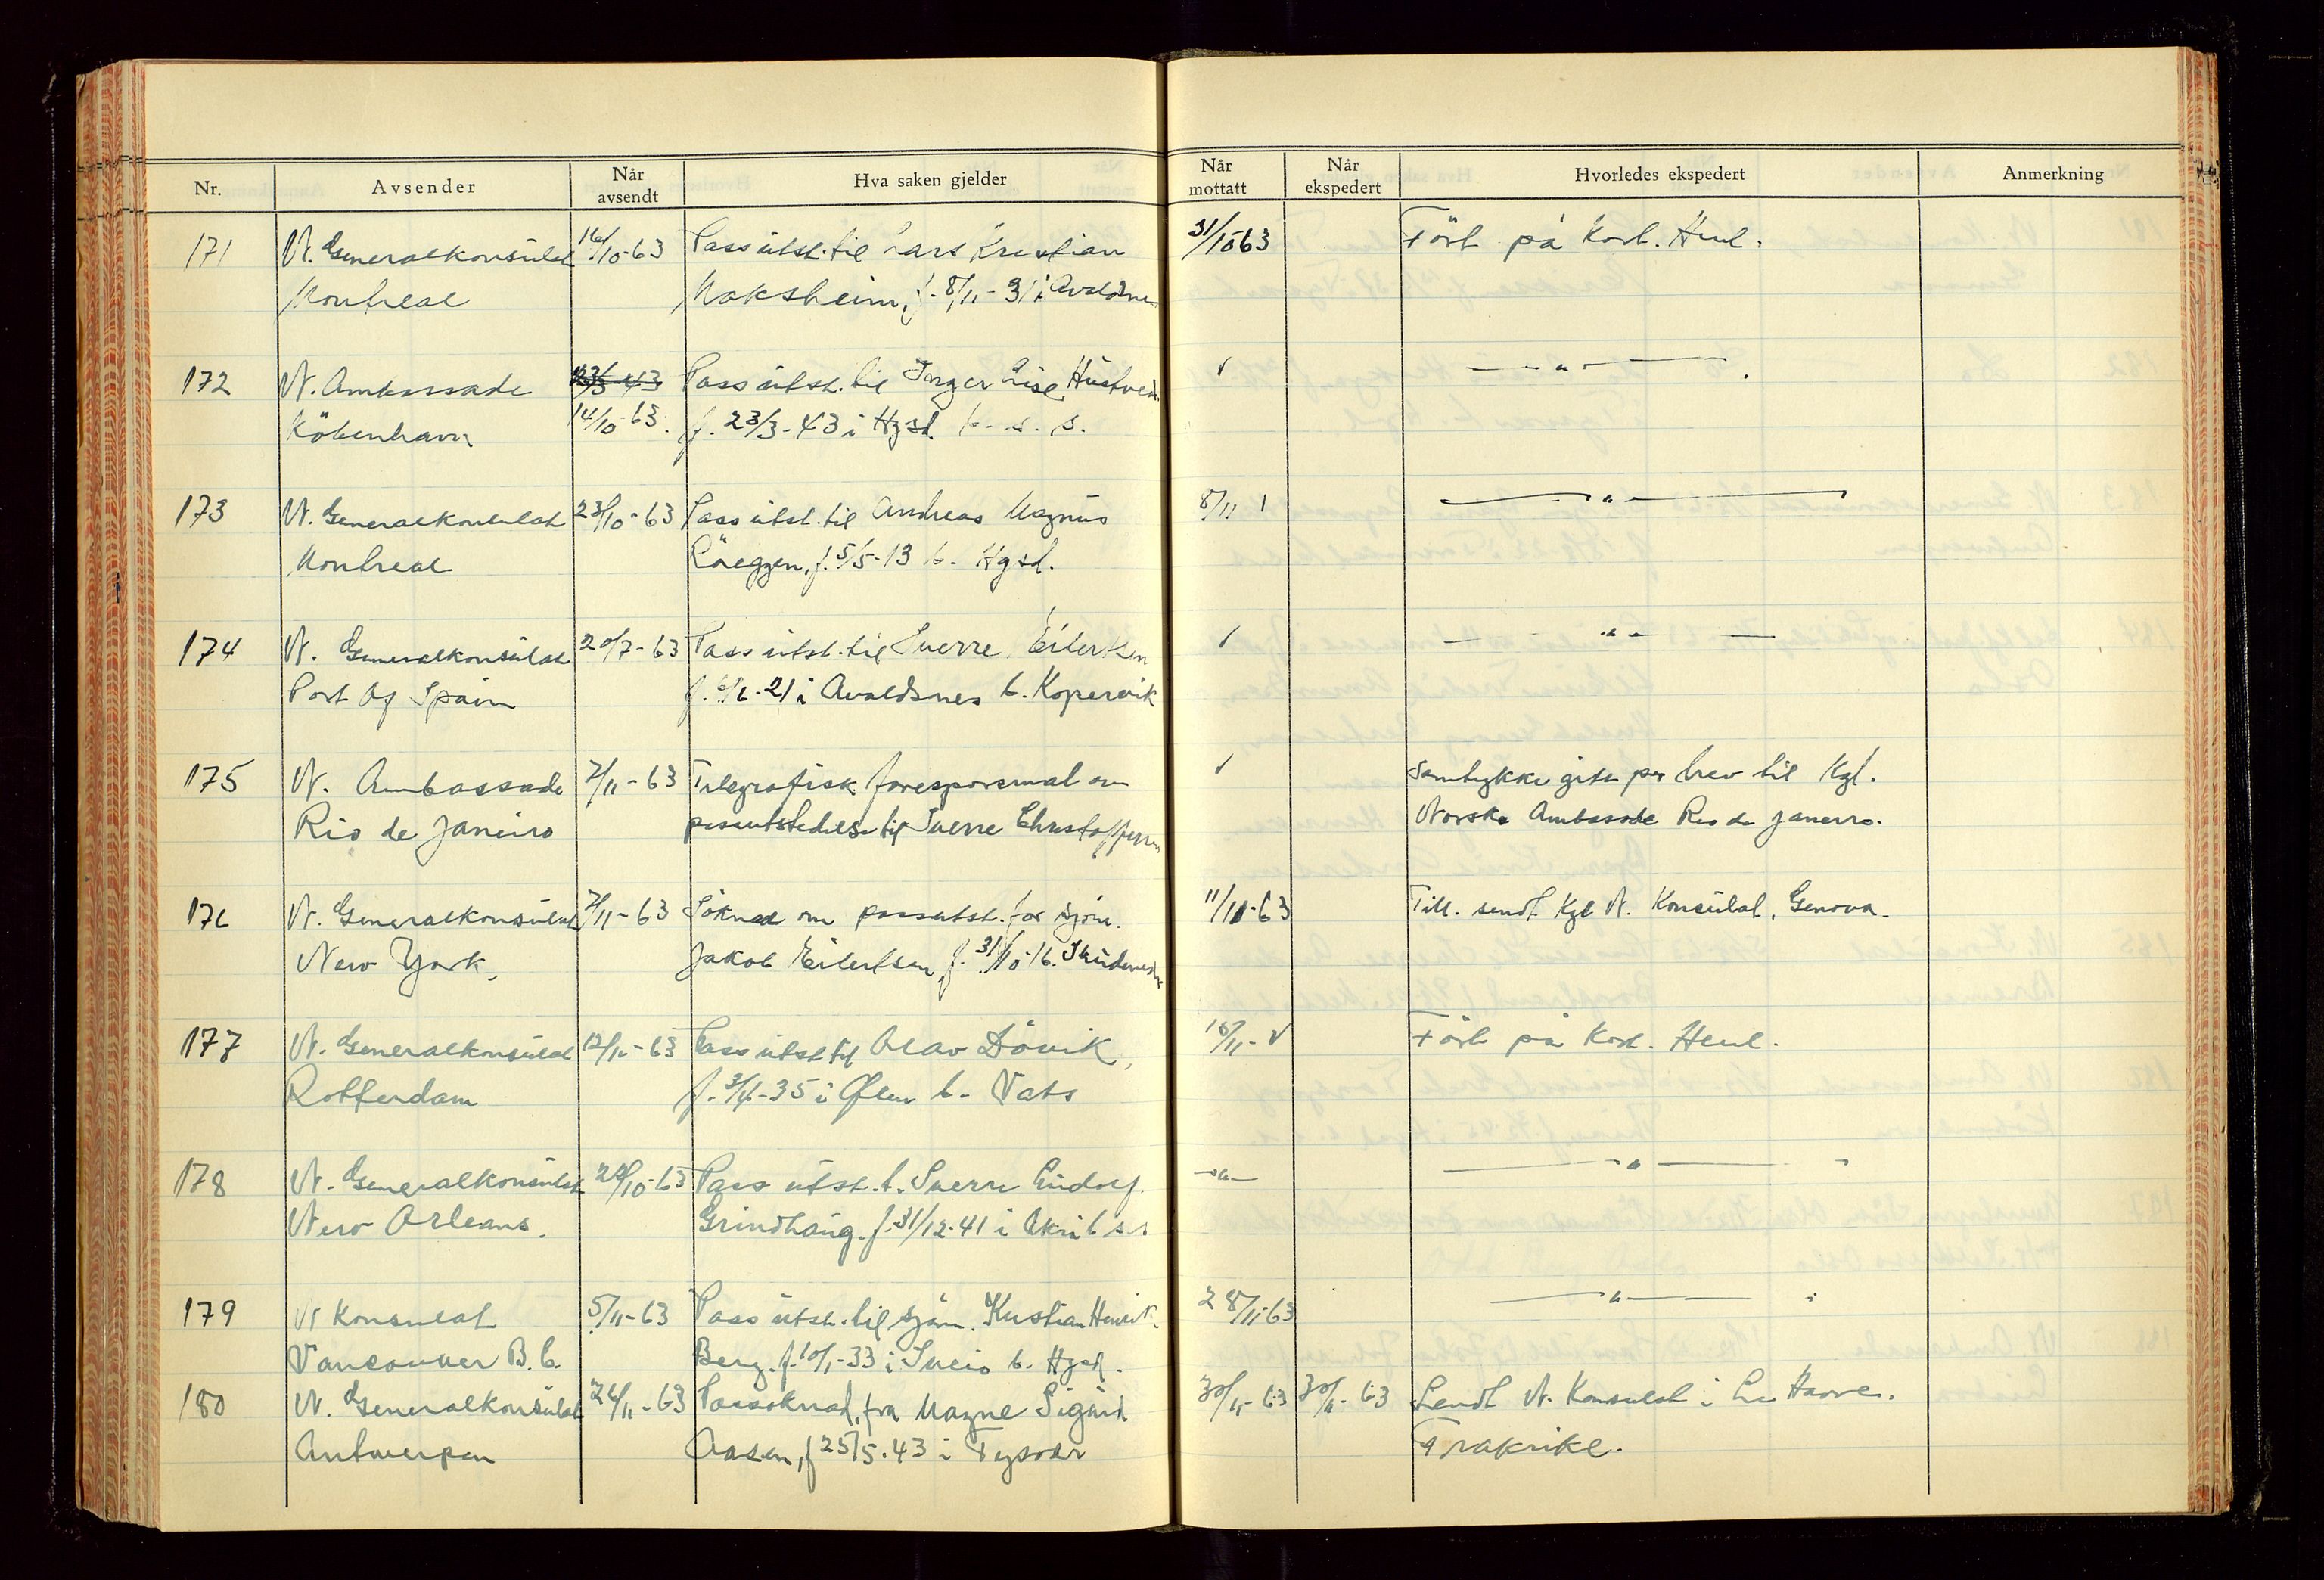 Nr. Avsender Når avsendt Hva saken gjelder Når mottatt Når ekspedert Hvorledes ekspedert Anmerkning
171 N. Generalkonsulat 16/10-63 Pass utst. til Lars Kristian 31/10 63 Ført på Kort. Henl.
Montreal Moksheim, f. 8/11-31 i Avaldsnes
172 N. Ambassade 23/3-43 Pass utst. til Inger Lise Hustvedt √ — " —
København 14/10-63. f. 23/3-43 i Hgsd. b. s. s.
173 N. Generalkonsulat 23/10-63 Pass utst. til Andreas Magnus 8/11 — " —
Montreal f. 5/5-13 b. Hgsd.
174 N. Generalkonsulat 20/7-63 Pass utst. til Sverre Eilertsen √ — " —
Port of Spain i Avaldsnes b. Kopervik
175 N. Ambassade 7/11-63 Telegrafisk forespørsmal om √ Samtykke gitt per brev til Kgl.
Rio de Janeiro passutstedelse til Sverre Christoffersen Norske Ambassade Rio de Janeiro.
176 N. Generalkonsulat 7/11-63 Søknad om passutst. for sjøm. 11/11-63 Till. sendt Kgl N. Konsulat, Genova.
New York. Jakob Eilertsen, f. 31/10-16. Skudenes
177 N. Generalkonsulat 12/11-63 Pass utst til Olav Døvik, 18/11- √ Ført på Kort. Henl.
Rotterdam f. 3/4-35 i Ølen b. Vats
178 N. Generalkonsulat 24/10-63 Pass utst. t. Sverre Ludolf — " — — " —
New Orleans. Grindhaug. f. 31/12-41 i Åkra b s.s
179 N Konsulat 5/11-63 Pass utst. til sjøm. Kristian Henrik 28/11-63 — " —
Vancouver B.C. Berg. f. 10/1-33 i Sveio b. Hgsd.
180 N. Generalkonsulat 26/11-63 Passøknad, fra Magne Sigurd 30/11-63 30/11-63 Sendt N. Konsulat i Le Havre.
Antwerpen Aasen, f 25/5-43 i Tysvær Frakrike.